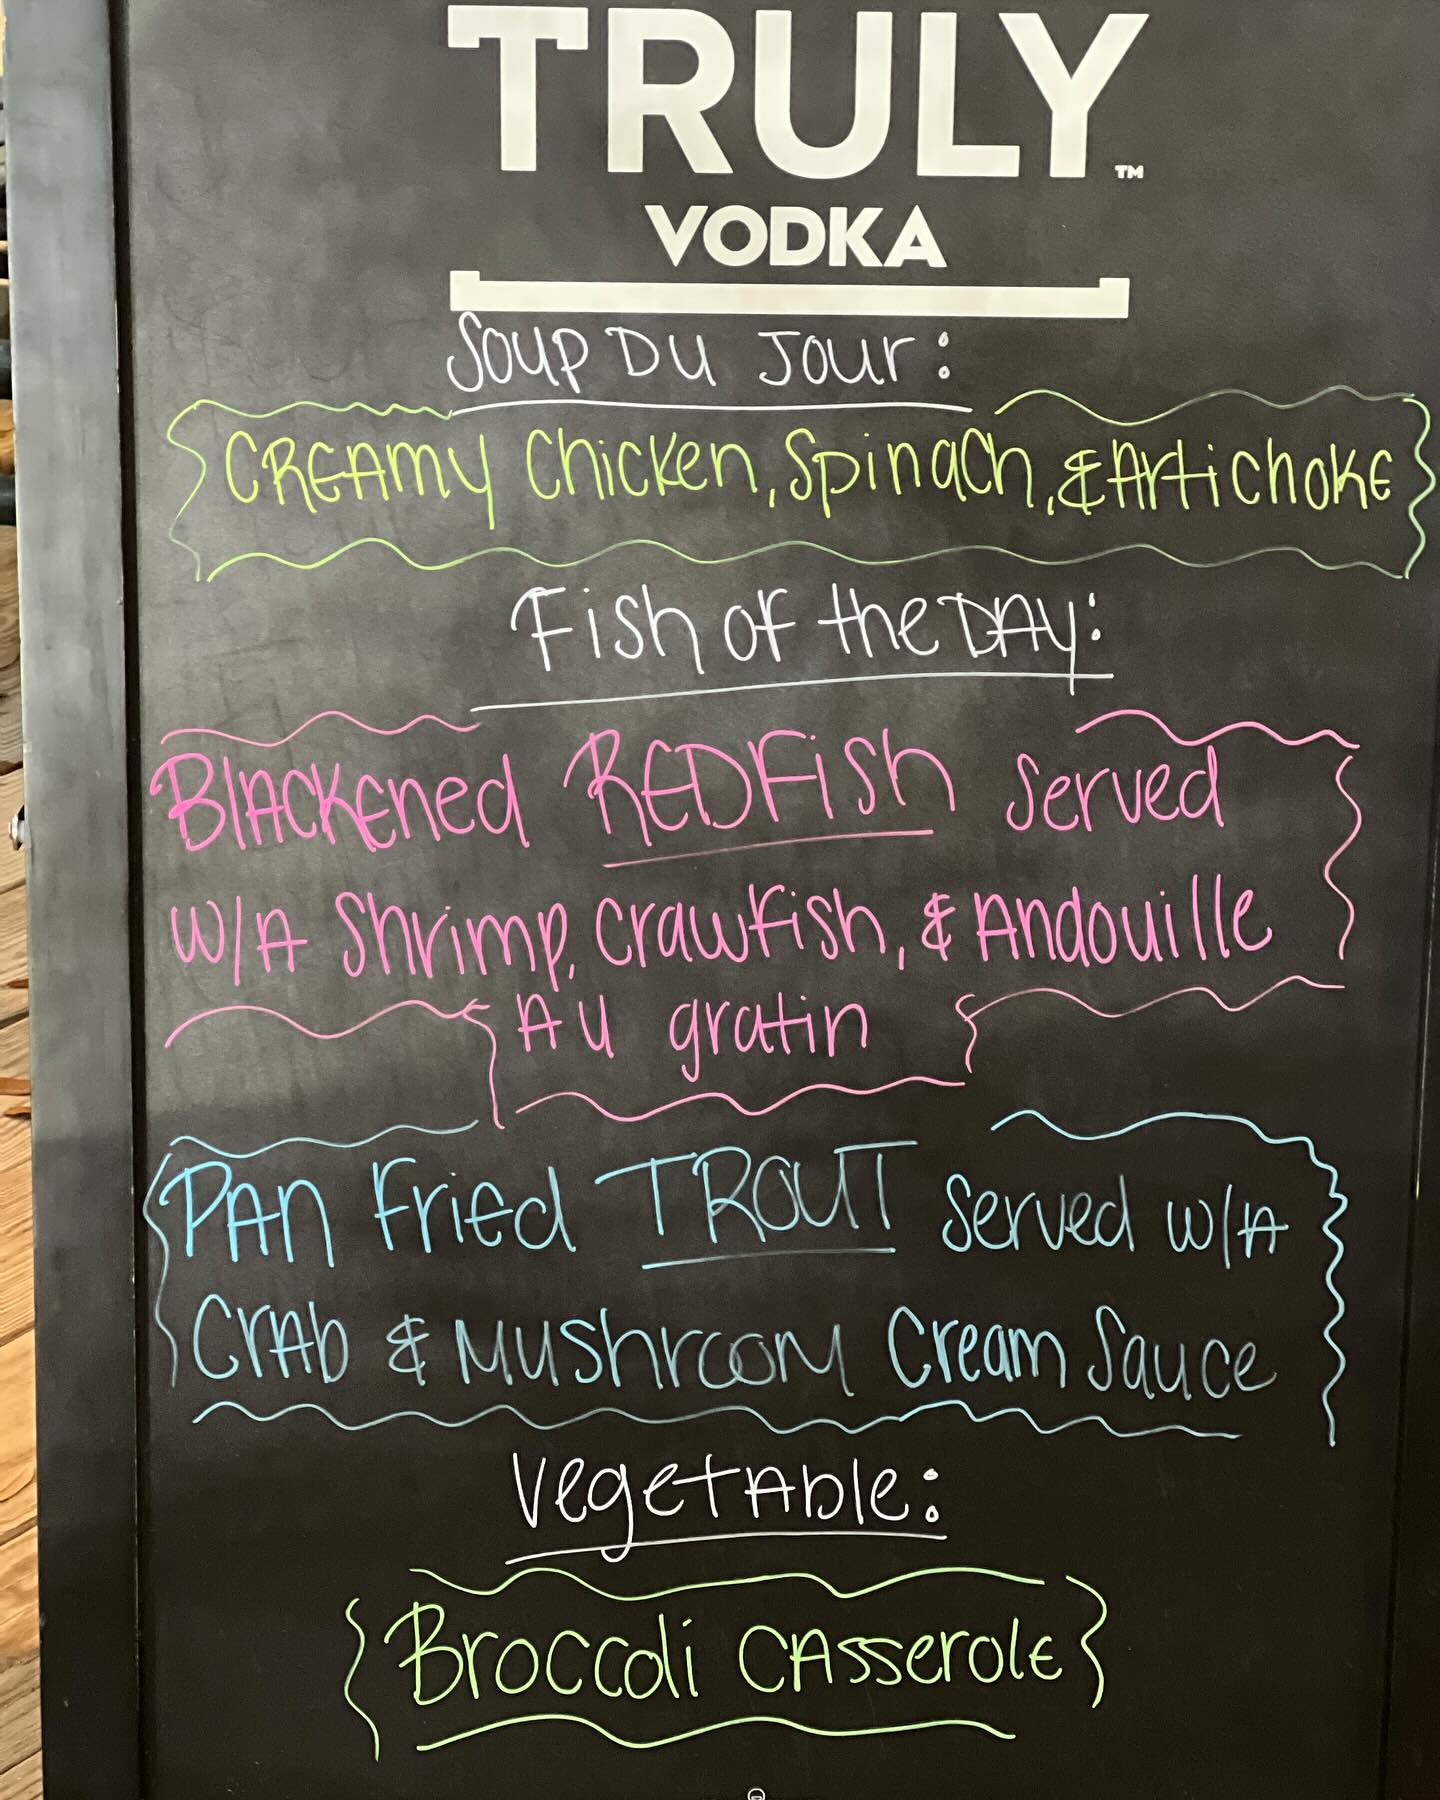 TRULY™
VODKA
Soup Du Jour:
CREAMY Chicken, Spinach, & Artichoke
Fish of the DAY:
Blackened REDFish served
w/A Shrimp, Crawfish, & Andouille
Au gratin
PAN Fried TROUT served w/A
CrAb & Mushroom Cream Sauce
VegetAble:
Broccoli CAsserole